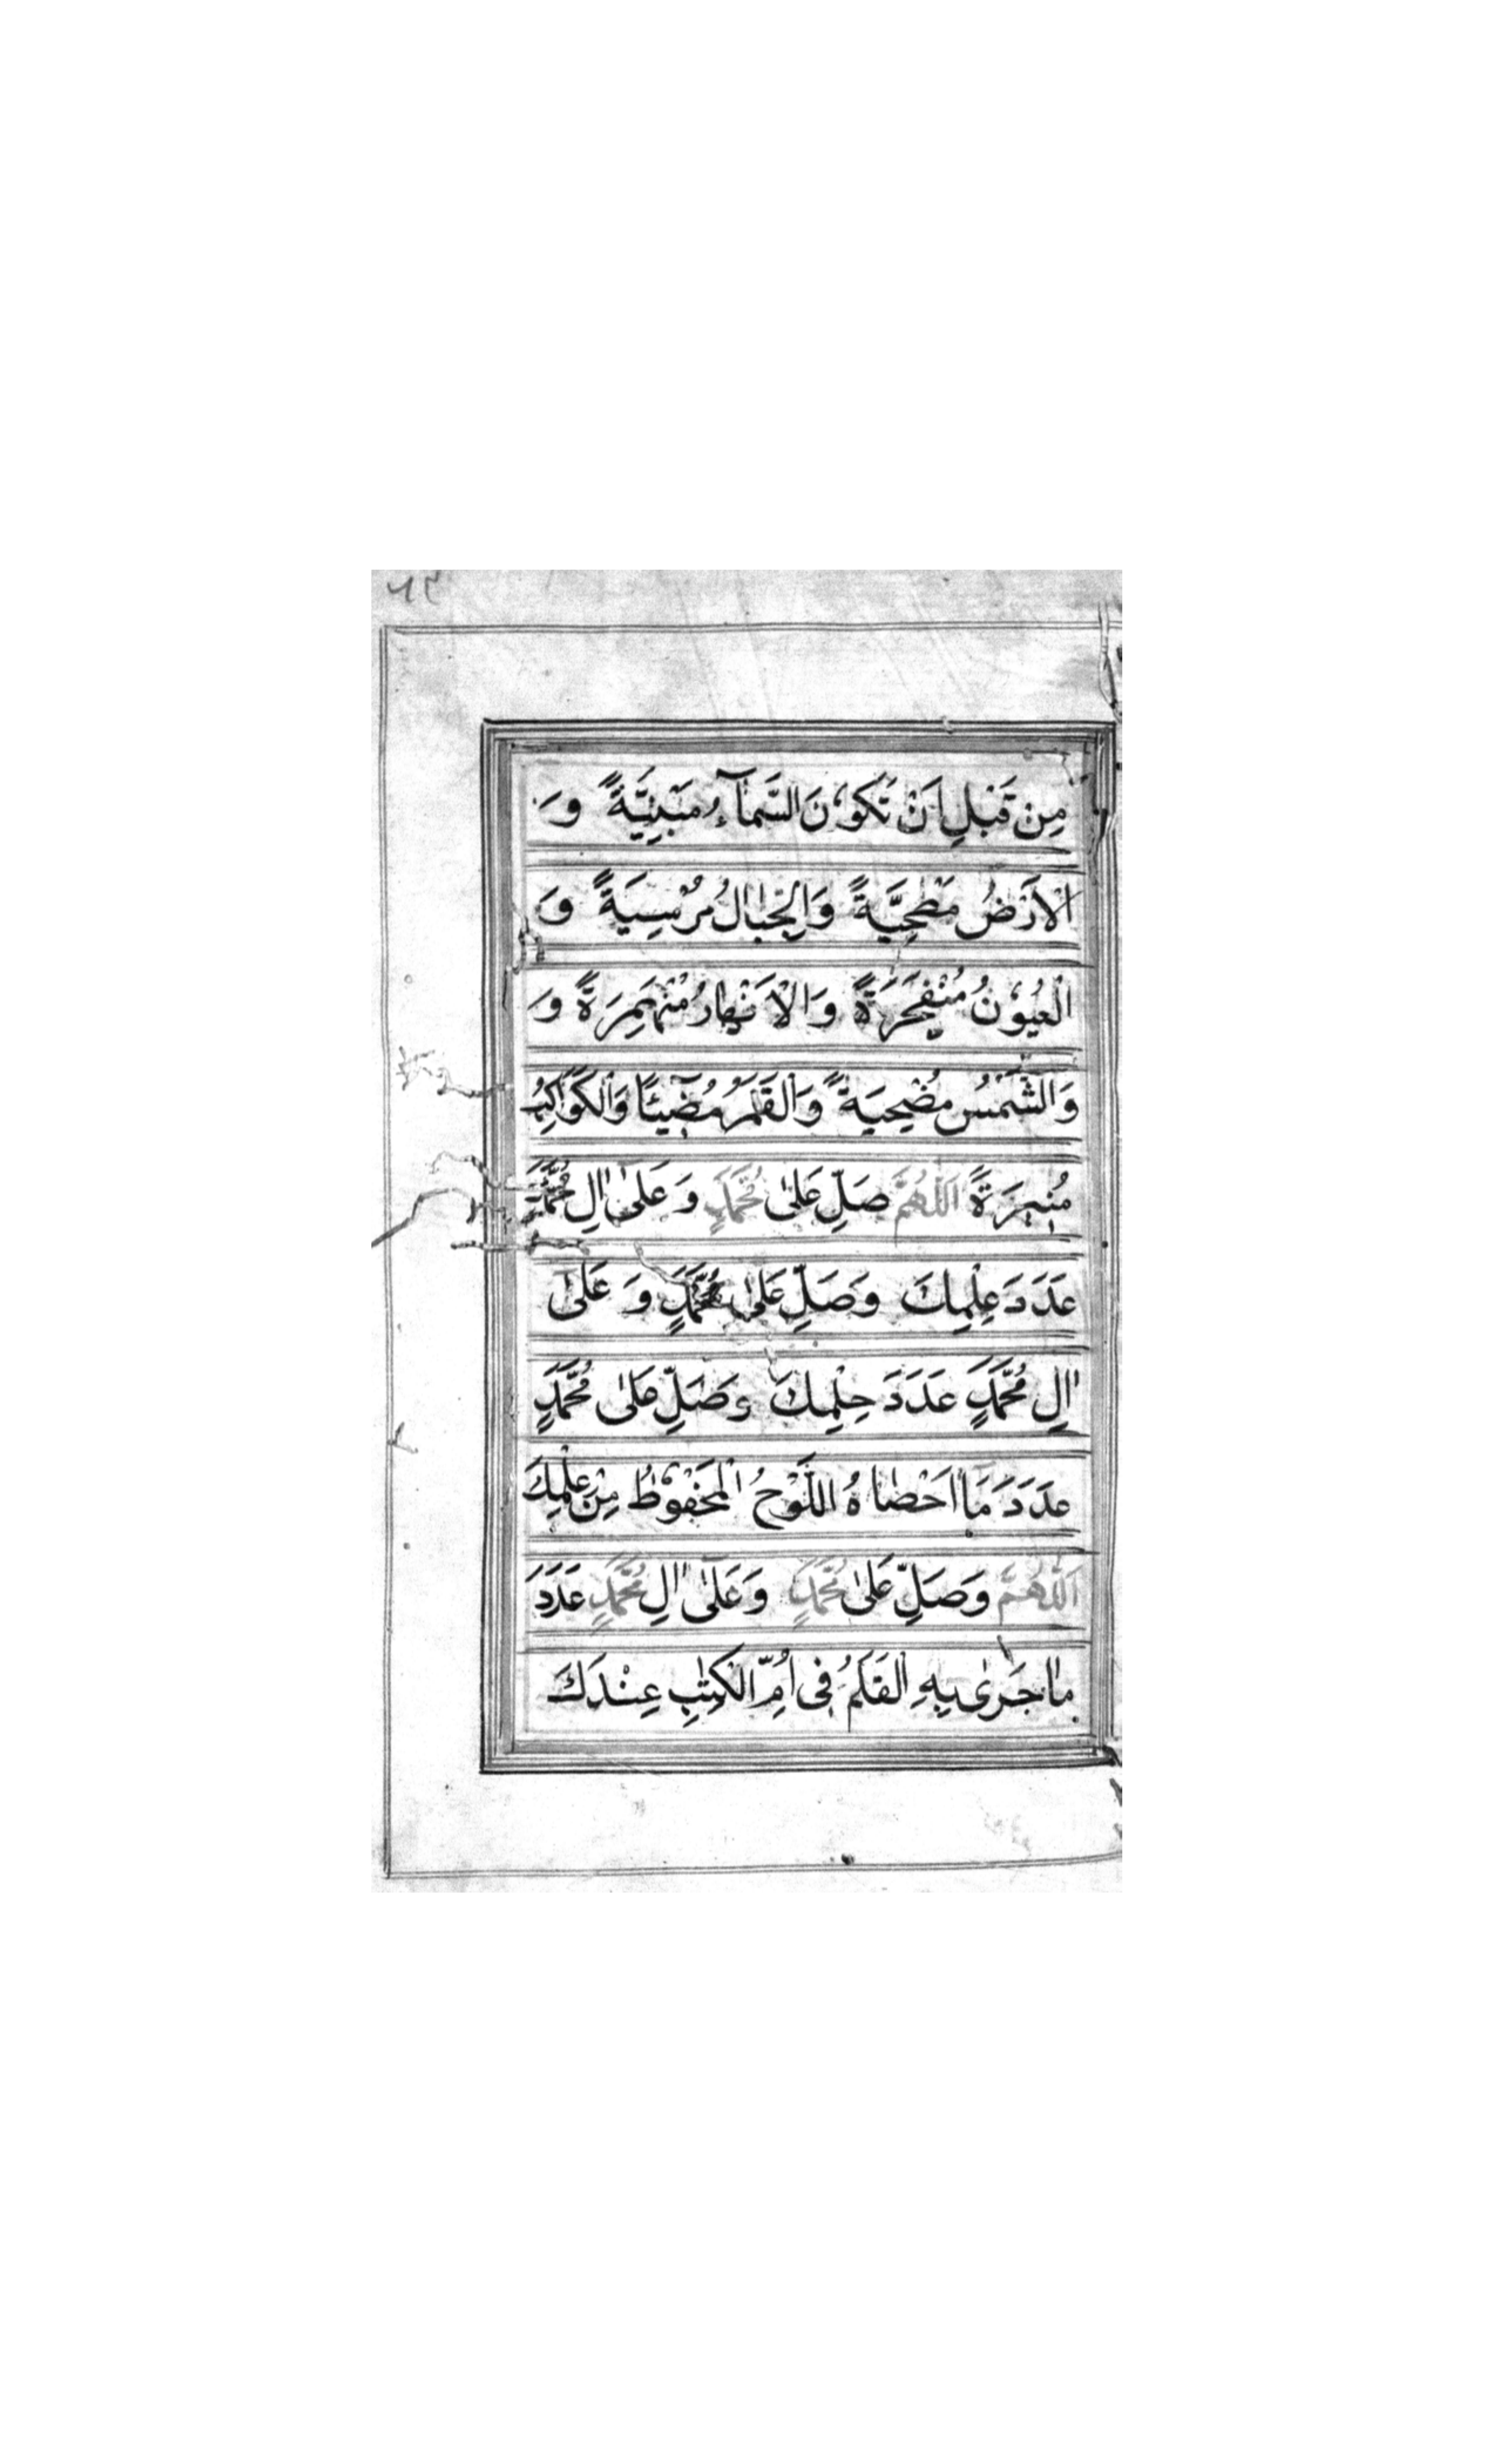 مِنْ قَبْلِ اَنْ تَكُوْنَ السَّمَآءُ مَبْنِيَّةً وَ
الْاَرْضُ مَطْحِيَّةً وَالْجِبَالُ مُرْسِيَةً وَ
الْعُيُوْنُ مُنْفَجِرَةً وَالْاَنْهَارُ مُنْهَمِرَةً وَ
وَالشَّمْسُ مُضْحِيَةً وَالْقَمَرُ مُضِيْئًا وَالْكَوَاكِبُ
مُنِيْرَةً اَللّٰهُمَّ صَلِّ عَلٰى مُحَمَّدٍ وَ عَلٰى اٰلِ مُحَمَّدٍ
عَدَدَ عِلْمِكَ وَصَلِّ عَلٰى مُحَمَّدٍ وَ عَلٰى
اٰلِ مُحَمَّدٍ عَدَدَ حِلْمِكَ وَصَلِّ عَلٰى مُحَمَّدٍ
عَدَدَ مَا اَحْصَاهُ اللَّوْحُ الْمَحْفُوْظُ مِنْ عِلْمِكَ
اَللّٰهُمَّ وَصَلِّ عَلٰى مُحَمَّدٍ وَعَلٰى اٰلِ مُحَمَّدٍ عَدَدَ
مَا جَرٰى بِهِ الْقَلَمُ فِى اُمِّ الْكِتٰبِ عِنْدَكَ